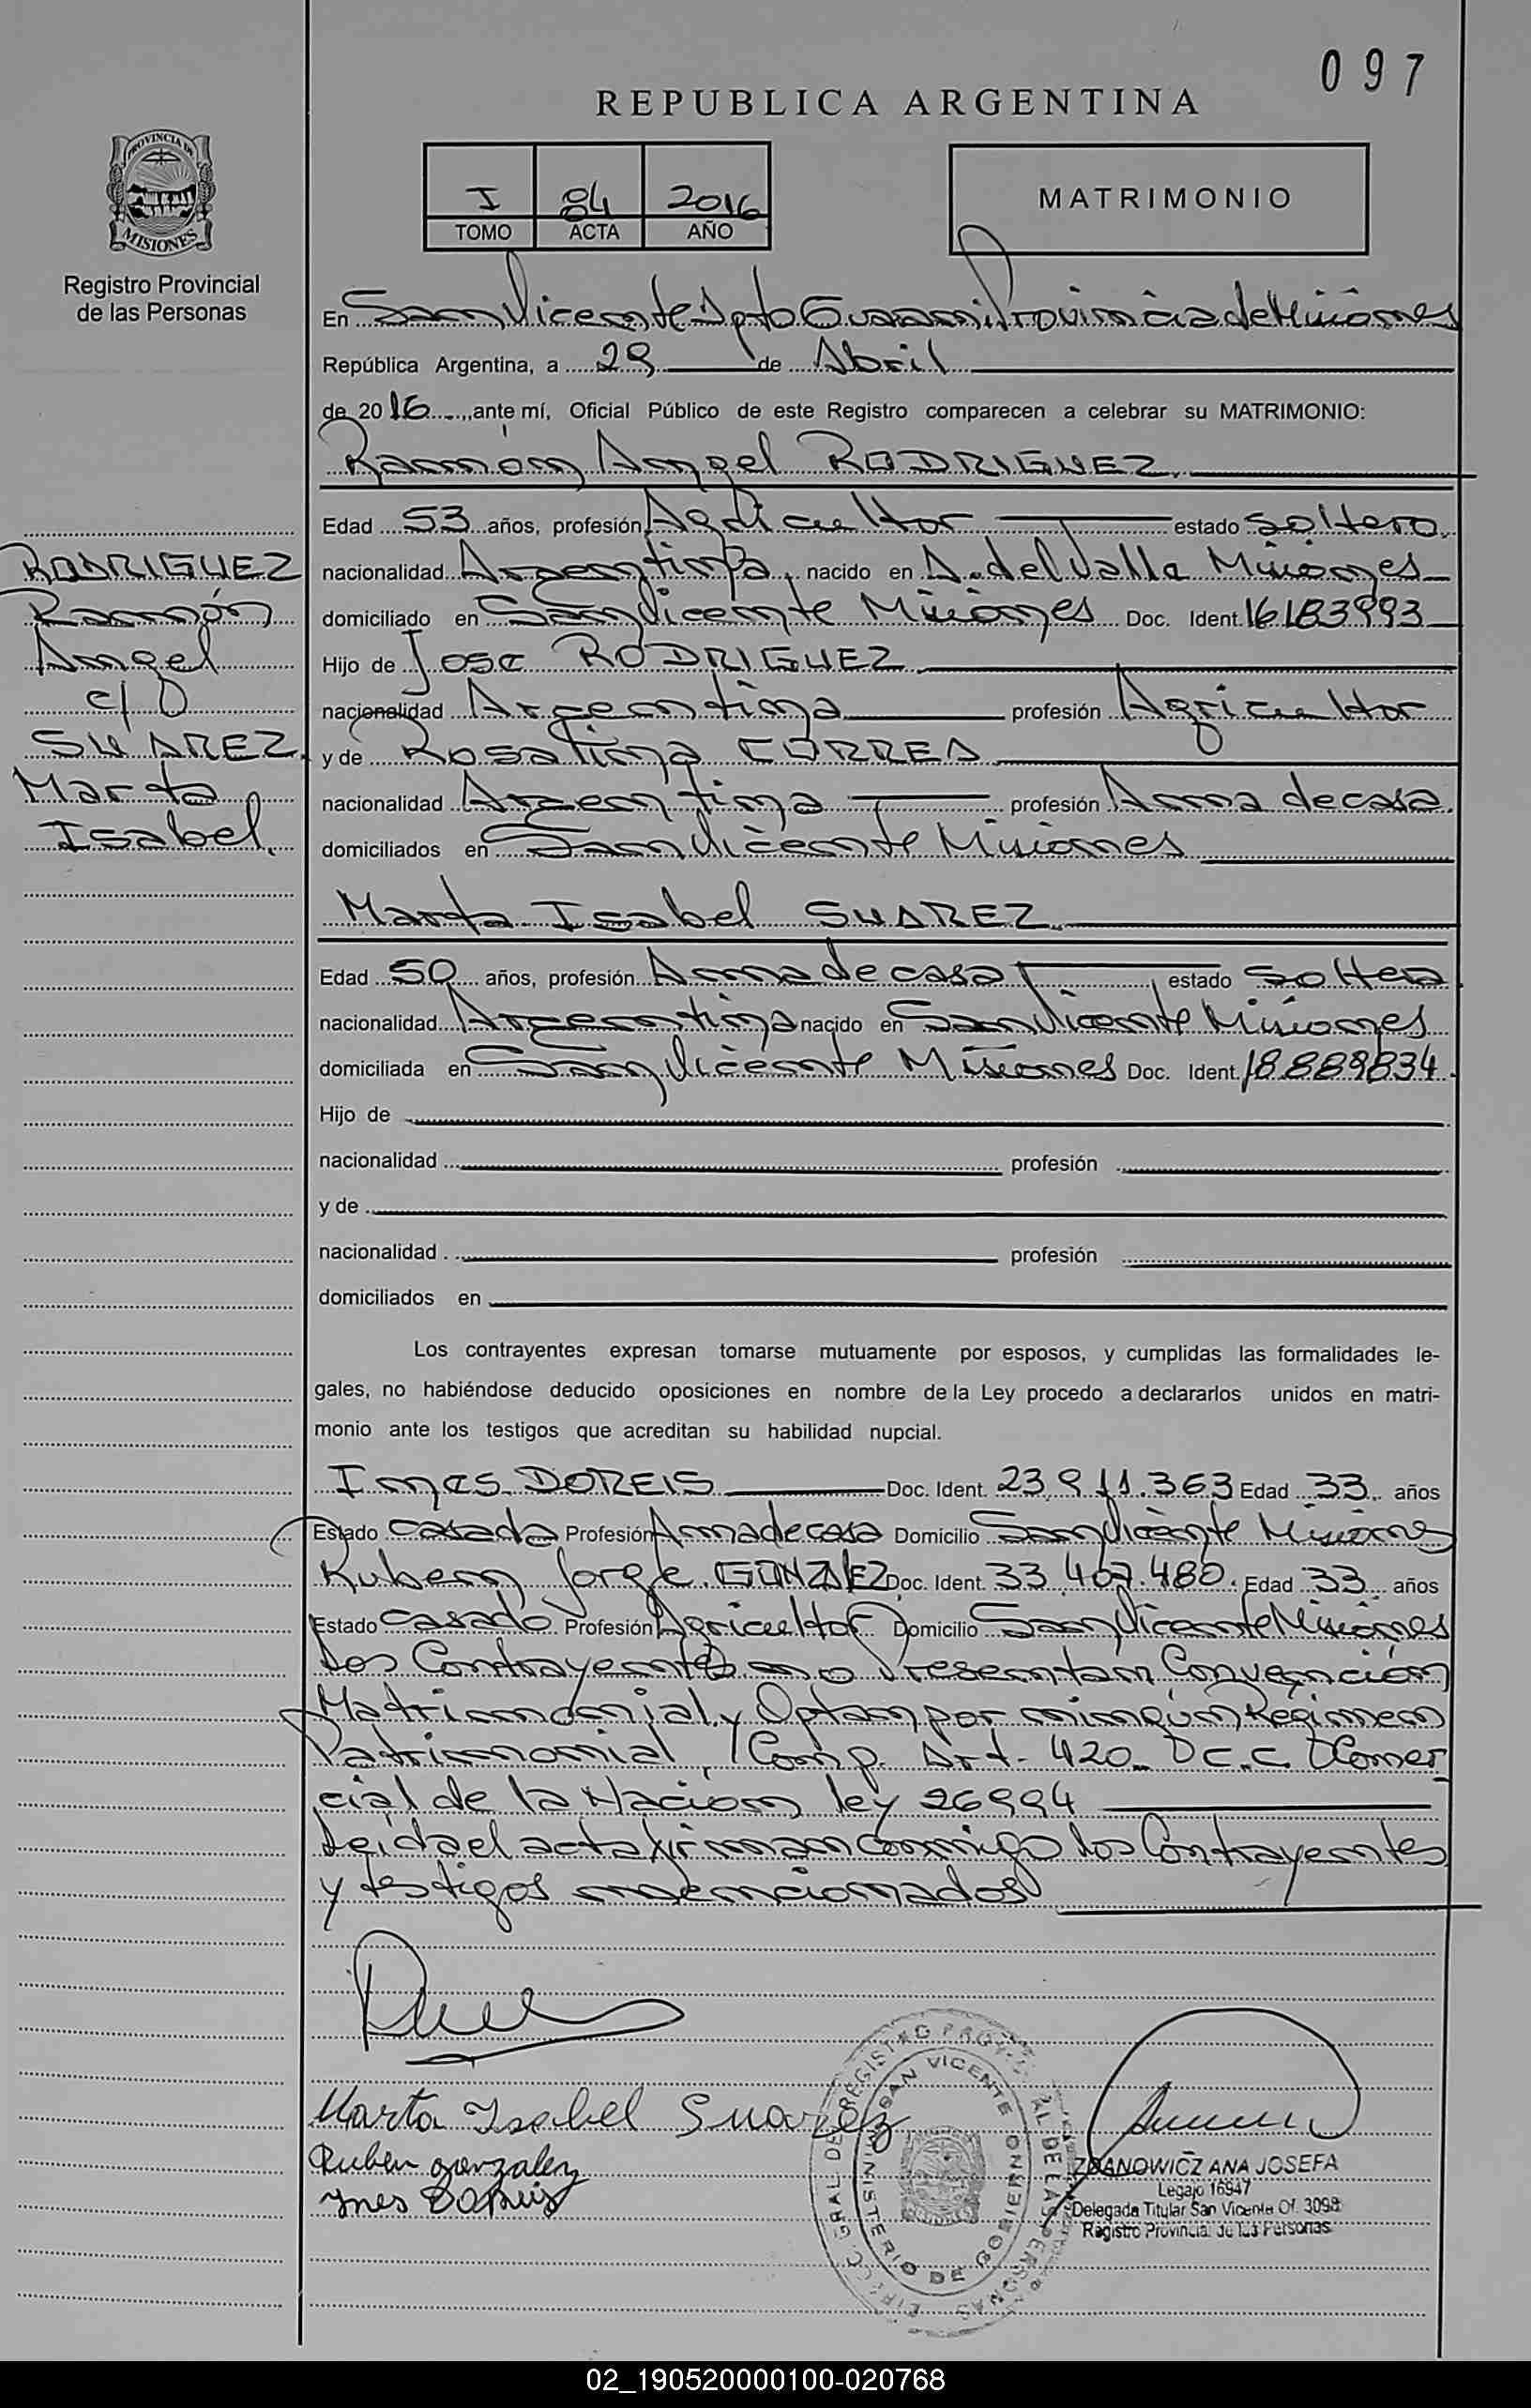 097
REPUBLICA ARGENTINA
PROVINCIA DE
MISIONES
Registro Provincial
de las Personas
I 84 2016
TOMO ACTA AÑO
MATRIMONIO
En San Vicente Dpto Guarani Provincia de Misiones
República Argentina, a 29 de Abril
de 2016, ante mí, Oficial Público de este Registro comparecen a celebrar su MATRIMONIO:
Ramón Angel RODRIGUEZ
Edad 53 años, profesión Agricultor estado soltero
nacionalidad Argentina, nacido en A. del Valle Misiones
domiciliado en San Vicente Misiones Doc. Ident. 16183993
Hijo de Jose RODRIGUEZ
nacionalidad Argentina profesión Agricultor
y de Rosalina CORREA
nacionalidad Argentina profesión Ama de casa
domiciliados en San Vicente Misiones
RODRIGUEZ
Ramón
Angel
c/
SUAREZ
Marta
Isabel.
Marta Isabel SUAREZ
Edad 50 años, profesión Ama de casa estado soltera
nacionalidad Argentina nacido en San Vicente Misiones
domiciliada en San Vicente Misiones Doc. Ident. 18.889834
Hijo de
nacionalidad profesión
y de
nacionalidad profesión
domiciliados en
Los contrayentes expresan tomarse mutuamente por esposos, y cumplidas las formalidades le-
gales, no habiéndose deducido oposiciones en nombre de la Ley procedo a declararlos unidos en matri-
monio ante los testigos que acreditan su habilidad nupcial.
Ines DOREIS Doc. Ident. 23.911.363 Edad 33 años
Estado casada Profesión Ama de casa Domicilio San Vicente Misiones
Ruben Jorge GONZALEZ Doc. Ident. 33.407.480. Edad 33 años
Estado casado Profesión Agricultor Domicilio San Vicente Misiones
Los Contrayentes no Presentan Convención
Matrimonial y Optan por ningún Regimen
Patrimonial, Comp. Art. 420 C.C. Comer
cial de la Nación ley 26994
Leida el acta firman conmigo los Contrayentes
y testigos mencionados
Marta Isabel Suarez
Ruben gonzalez
Ines
SAN VICENTE
MINISTERIO DE GOBIERNO
DIREC. GRAL DEL REGISTRO PROVINCIAL DE LAS PERSONAS
ZDANOWICZ ANA JOSEFA
Legajo 16947
Delegada Titular San Vicente Of. 3098
Registro Provincial de las Personas
02_190520000100-020768